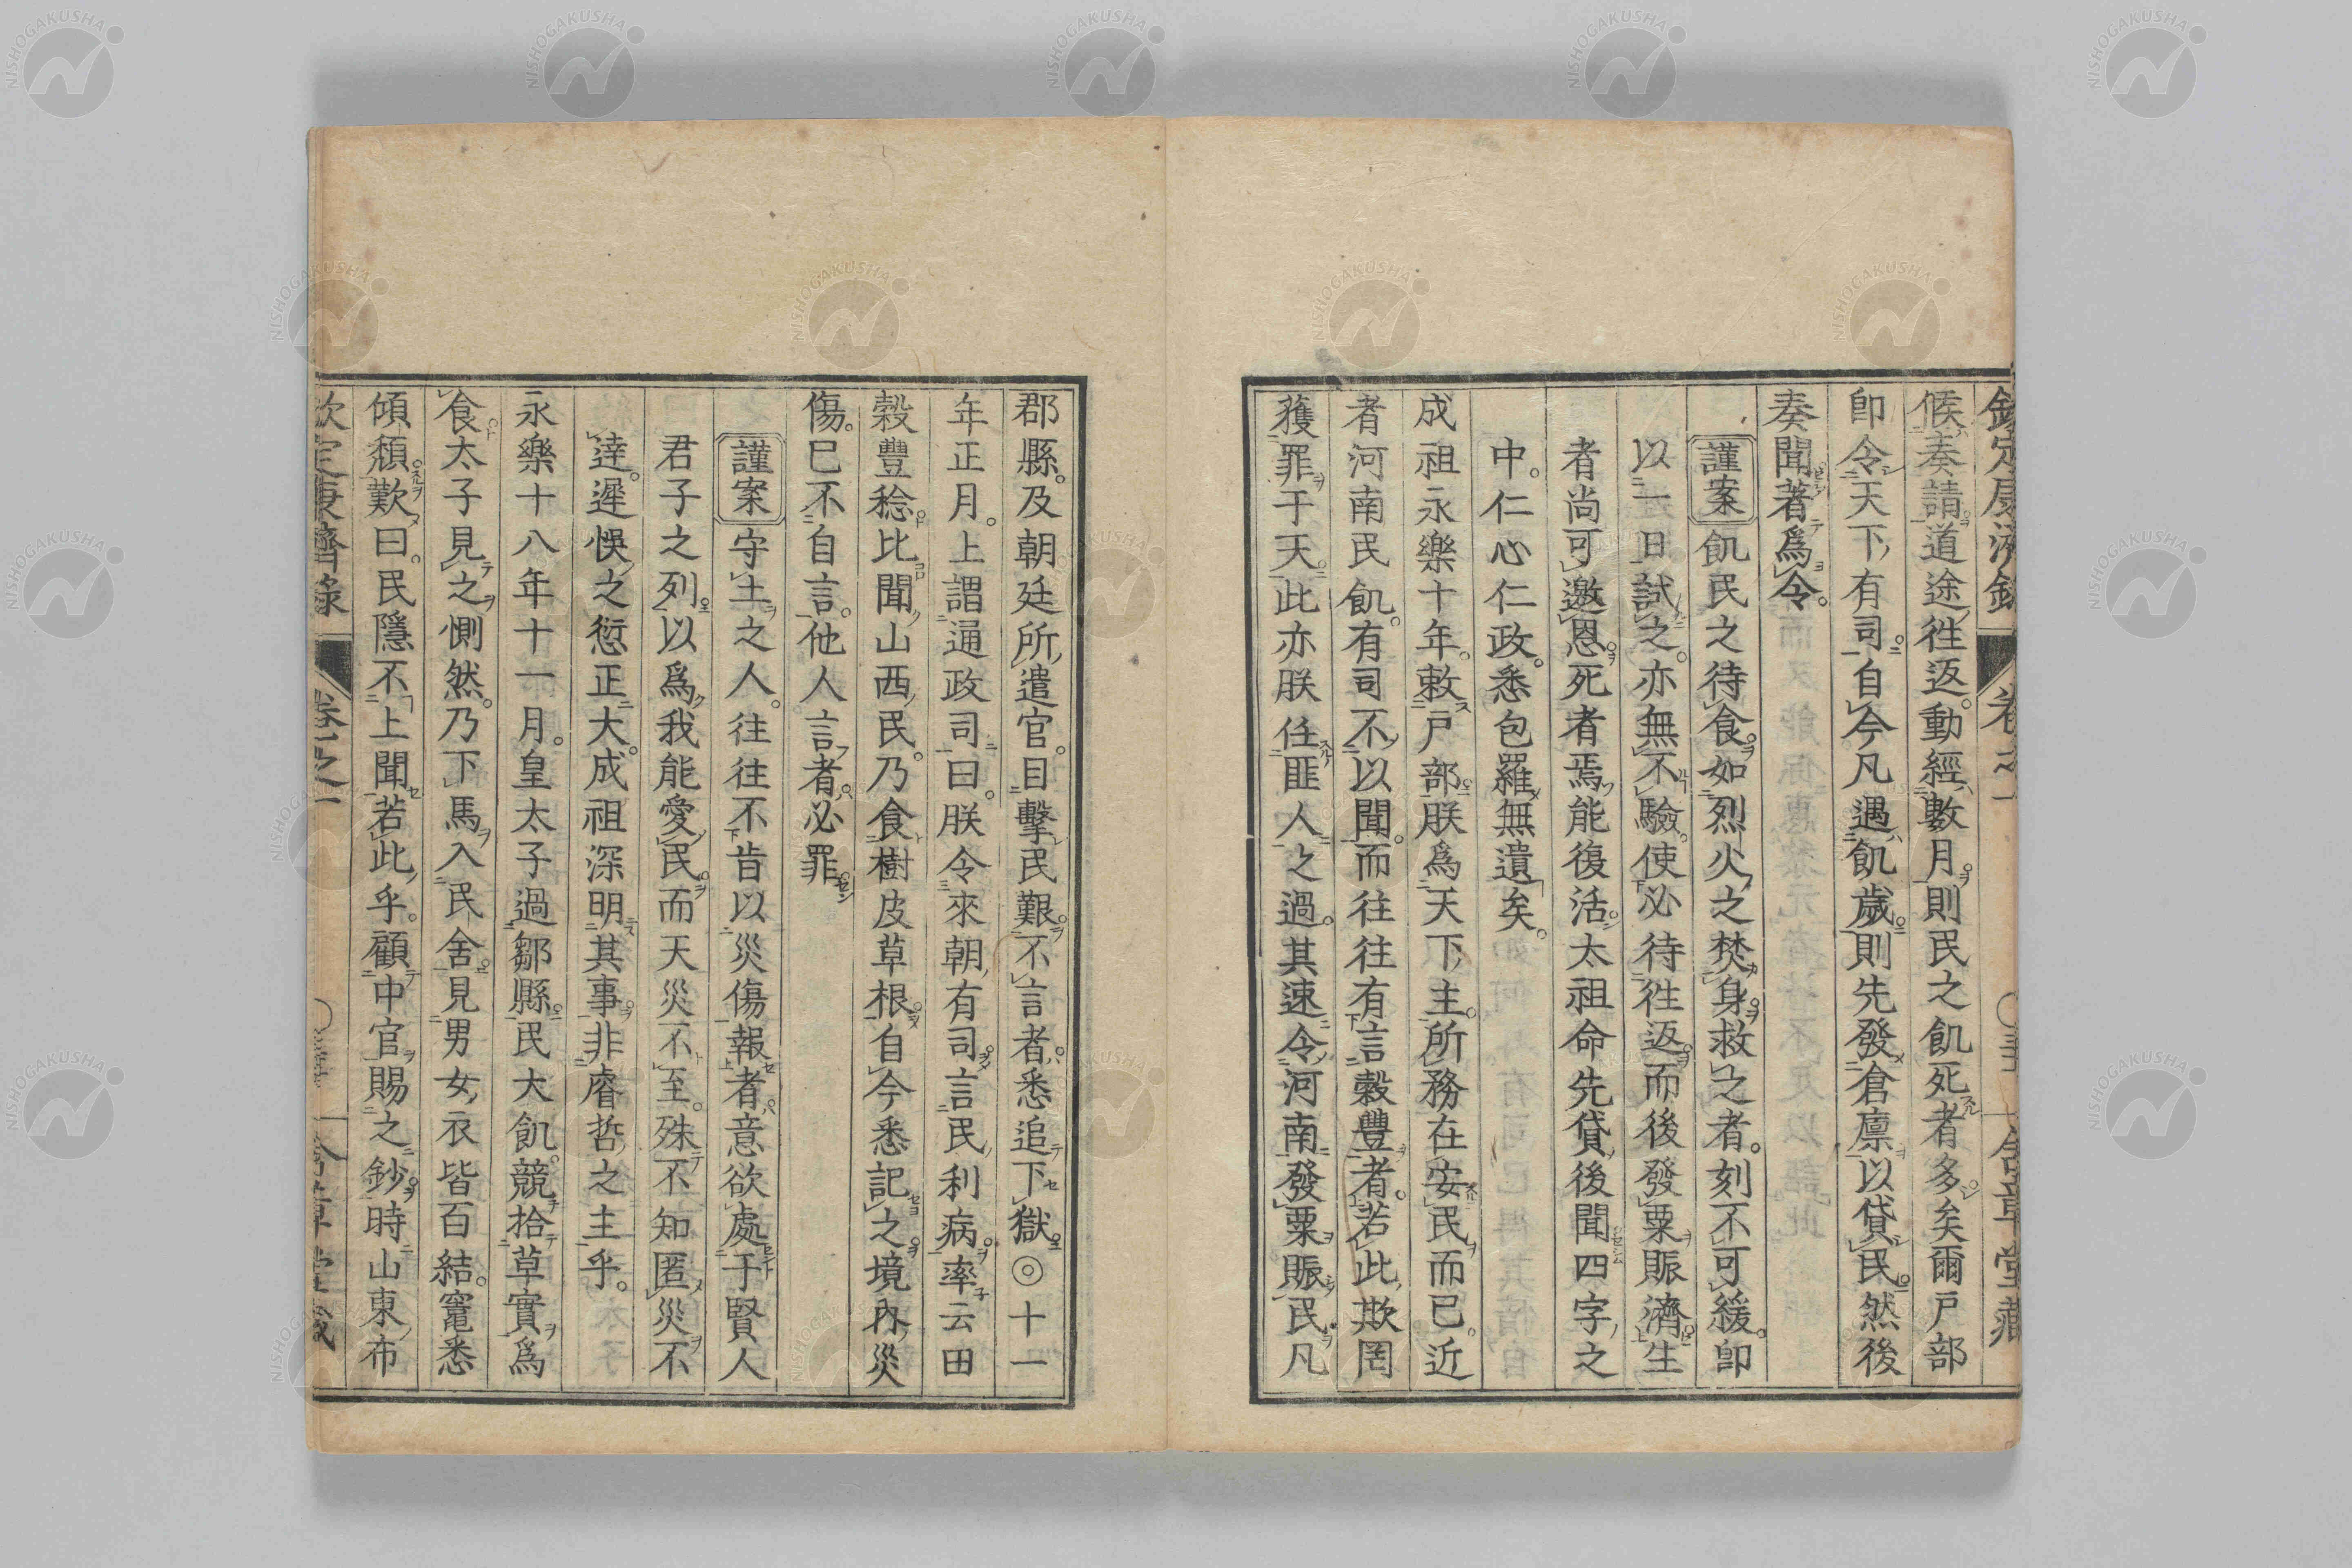 欽定康濟錄 卷之一
候奏請道途往返動經數月則民之飢死者多矣爾戶部
卽令天下有司自今凡遇飢歲則先發倉廩以貸民然後
奏聞著爲令
謹案飢民之待食如烈火之焚身救之者刻不可緩卽
以一日試之亦無不驗使必待往返而後發粟賑濟生
者尚可邀恩死者焉能復活太祖命先貸後聞四字之
中仁心仁政悉包羅無遺矣
成祖永樂十年敕戶部朕爲天下主所務在安民而已近
者河南民飢有司不以聞而往往有言穀豐者若此欺罔
獲罪于天此亦朕任匪人之過其速令河南發粟賑民凡
郡縣及朝廷所遣官目擊民艱不言者悉追下獄◎十一
年正月上謂通政司曰朕令來朝有司言民利病率云田
穀豐稔比聞山西民乃食樹皮草根自今悉記之境內災
傷已不自言他人言者必罪
謹案守土之人往往不肯以災傷報者意欲處于賢人
君子之列以爲我能愛民而天災不至殊不知匿災不
達遲悞之愆正大成祖深明其事非睿哲之主乎
永樂十八年十一月皇太子過鄒縣民大飢競拾草實爲
食太子見之惻然乃下馬入民舍見男女衣皆百結竈悉
傾頹歎曰民隱不上聞若此乎顧中官賜之鈔時山東布
欽定康濟錄 卷之一
NISHOGAKUSHA